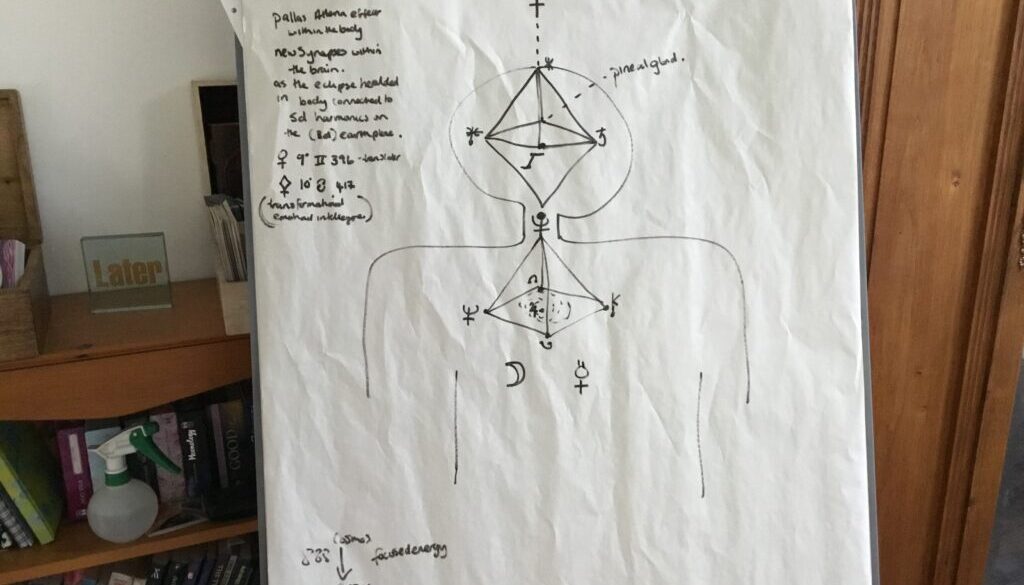 pallas Athena effect
within the body
new Synapses within
the brain.
as the eclipse heralded
in body connected to
5d harmonics on
the (3d) earthplane.
♀ 9° II 396 - translator
10° 417
(transformational
emotional intelligence)
pineal gland.
Later
Cosmos
focused energy
GOD